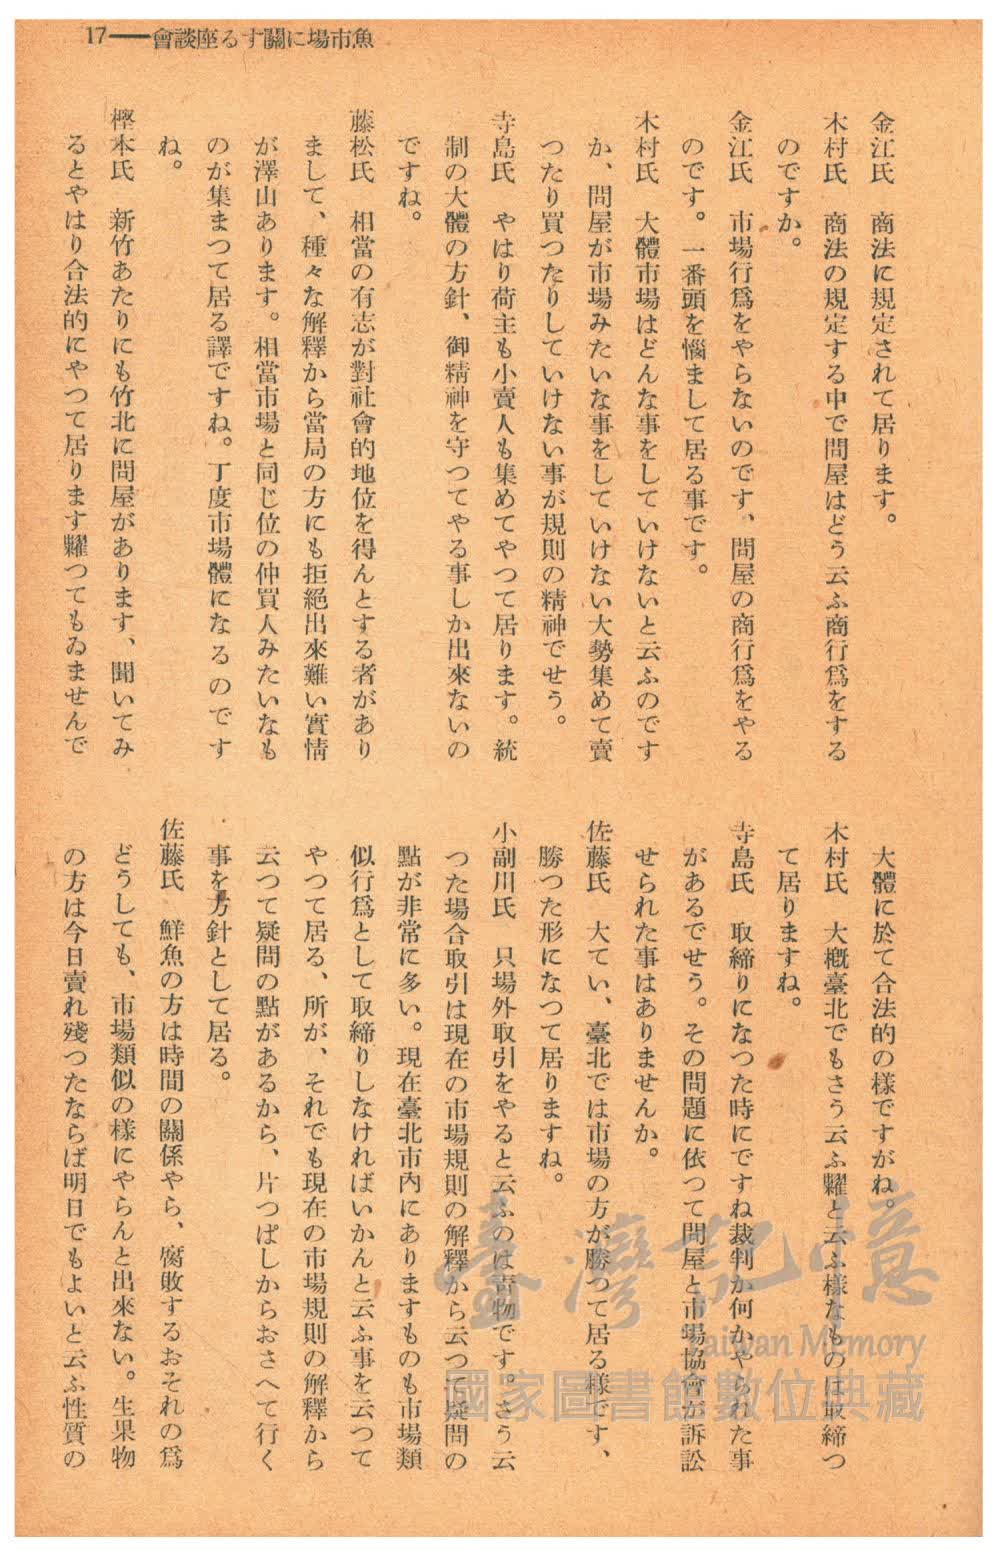 魚市場に關する座談會――17
金江氏　商法に規定されて居ります。
木村氏　商法の規定する中で問屋はどう云ふ商行爲をする
のですか。
金江氏　市場行爲をやらないのです、問屋の商行爲をやる
のです。一番頭を惱まして居る事です。
木村氏　大體市場はどんな事をしていけないと云ふのです
か、問屋が市場みたいな事をしていけない大勢集めて賣
つたり買つたりしていけない事が規則の精神でせう。
寺島氏　やはり荷主も小賣人も集めてやつて居ります。統
制の大體の方針、御精神を守つてやる事しか出來ないの
ですね。
藤松氏　相當の有志が對社會的地位を得んとする者があり
まして、種々な解釋から當局の方にも拒絕出來難い實情
が澤山あります。相當市場と同じ位の仲買人みたいなも
のが集まつて居る譯ですね。丁度市場體になるのです
ね。
樫本氏　新竹あたりにも竹北に問屋があります、聞いてみ
るとやはり合法的にやつて居ります糶つてもゐませんで
大體に於て合法的の樣ですがね。
木村氏　大槪臺北でもさう云ふ糶と云ふ樣なものは取締つ
て居りますね。
寺島氏　取締りになつた時にですね裁判か何かやられた事
があるでせう。その問題に依つて問屋と市場協會が訴訟
せられた事はありませんか。
佐藤氏　大てい、臺北では市場の方が勝つて居る樣です、
勝つた形になつて居りますね。
小副川氏　只場外取引をやると云ふのは靑物です。さう云
つた場合取引は現在の市場規則の解釋から云つて疑問の
點が非常に多い。現在臺北市內にありますものも市場類
似行爲として取締りしなければいかんと云ふ事を云つて
やつて居る、所が、それでも現在の市場規則の解釋から
云つて疑問の點があるから、片つぱしからおさへて行く
事を方針として居る。
佐藤氏　鮮魚の方は時間の關係やら、腐敗するおそれの爲
どうしても、市場類似の樣にやらんと出來ない。生果物
の方は今日賣れ殘つたならば明日でもよいと云ふ性質の
臺灣記憶
Taiwan Memory
國家圖書館數位典藏